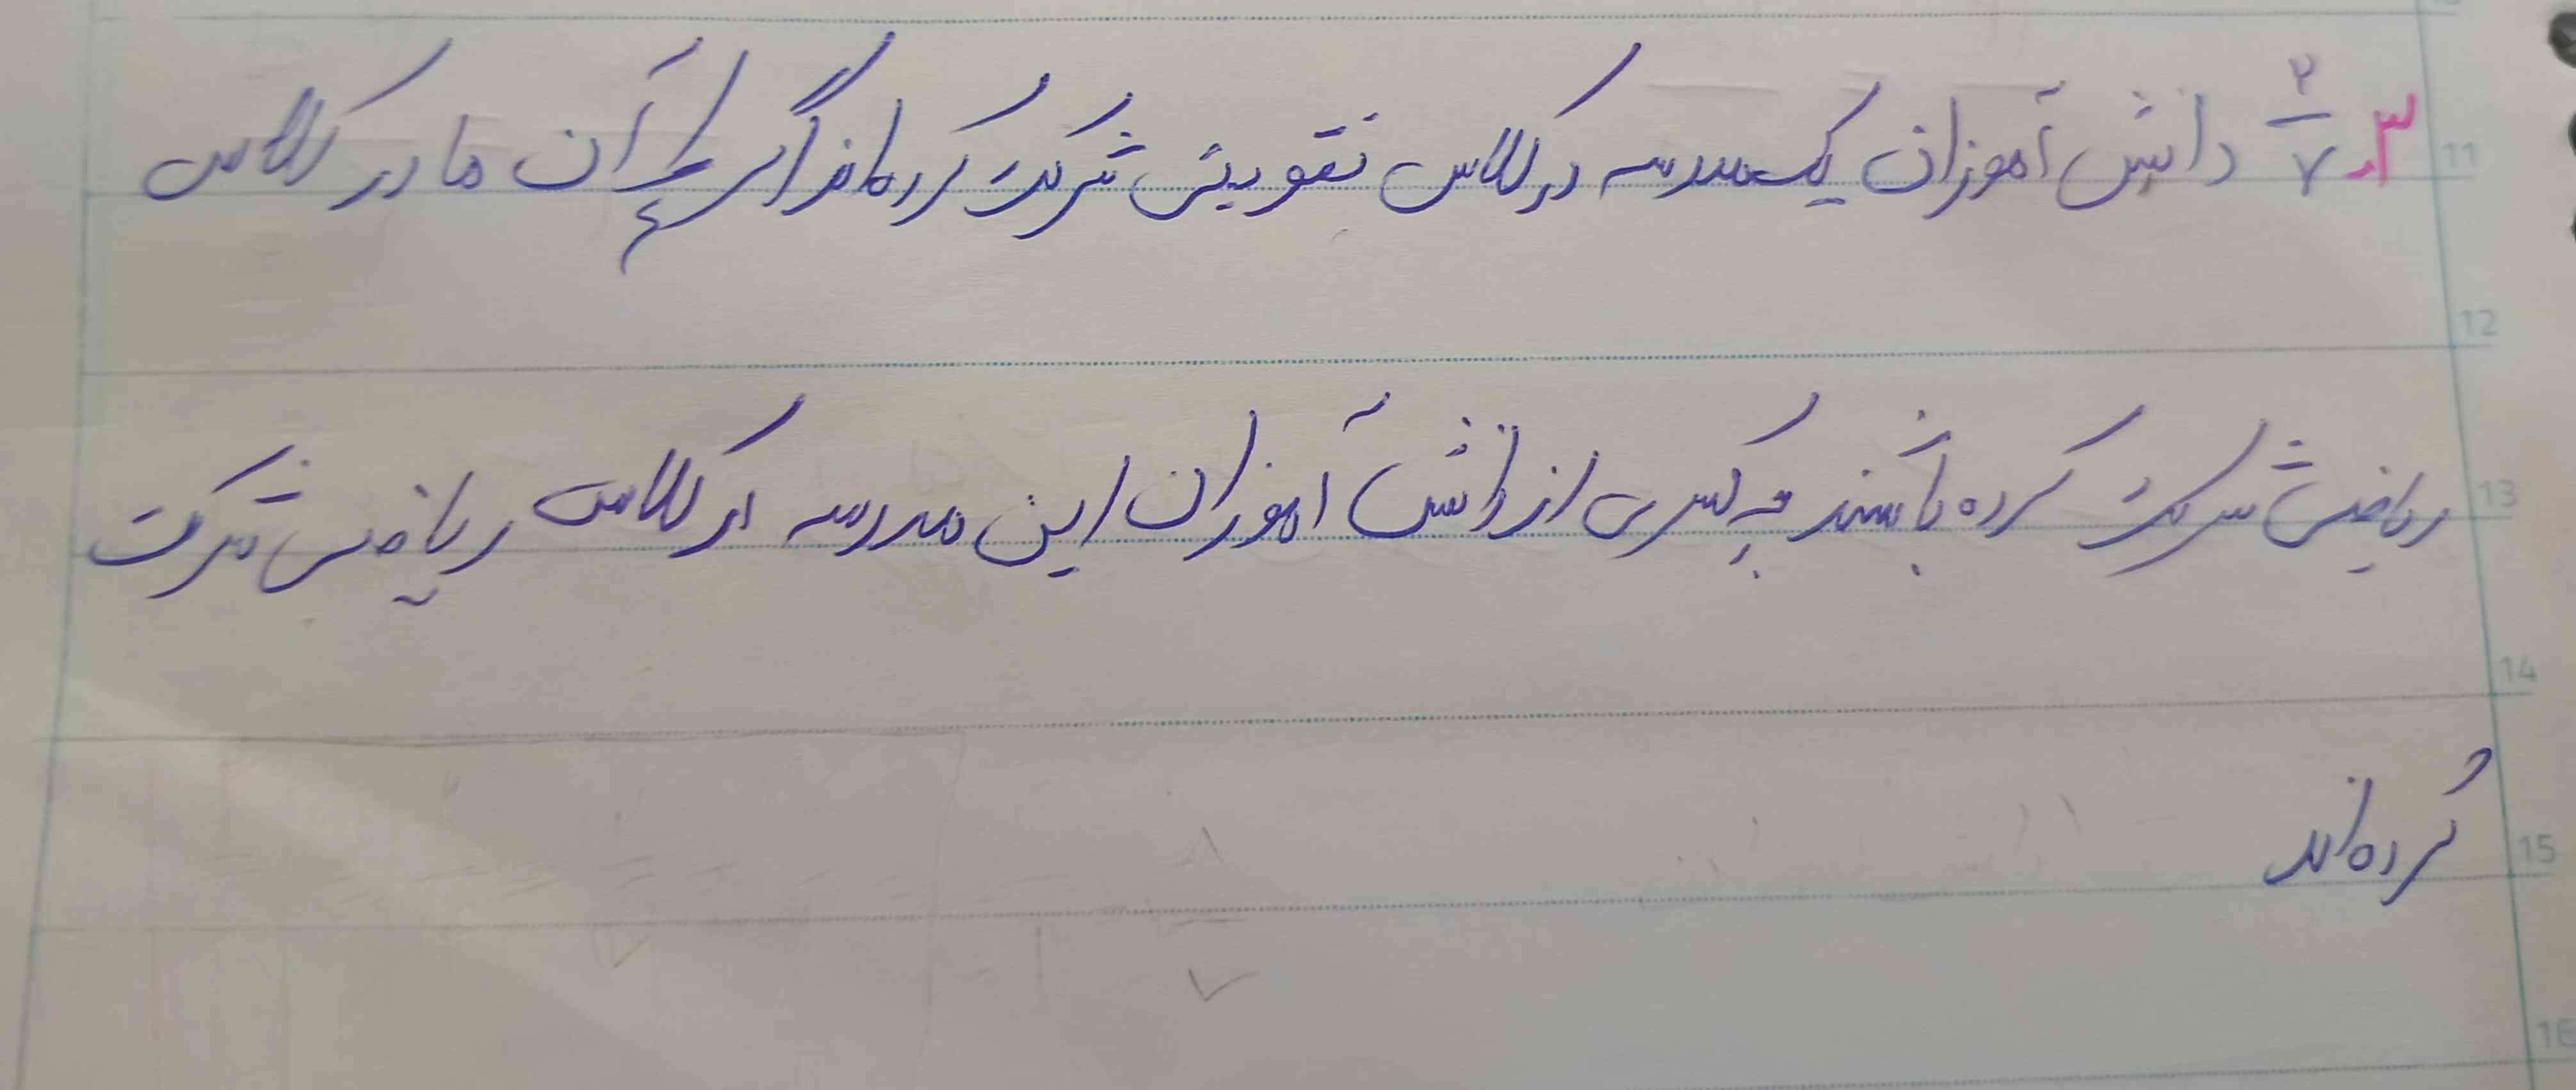 ۳. ۲/۷ دانش آموزان یک مدرسه در کلاس تقویتی شرکت کرده‌اند اگر ۱/۴ آن ها در کلاس
ریاضی شرکت کرده باشند چه کسری از دانش آموزان این مدرسه در کلاس ریاضی شرکت
کرده‌اند
11
12
13
14
15
16